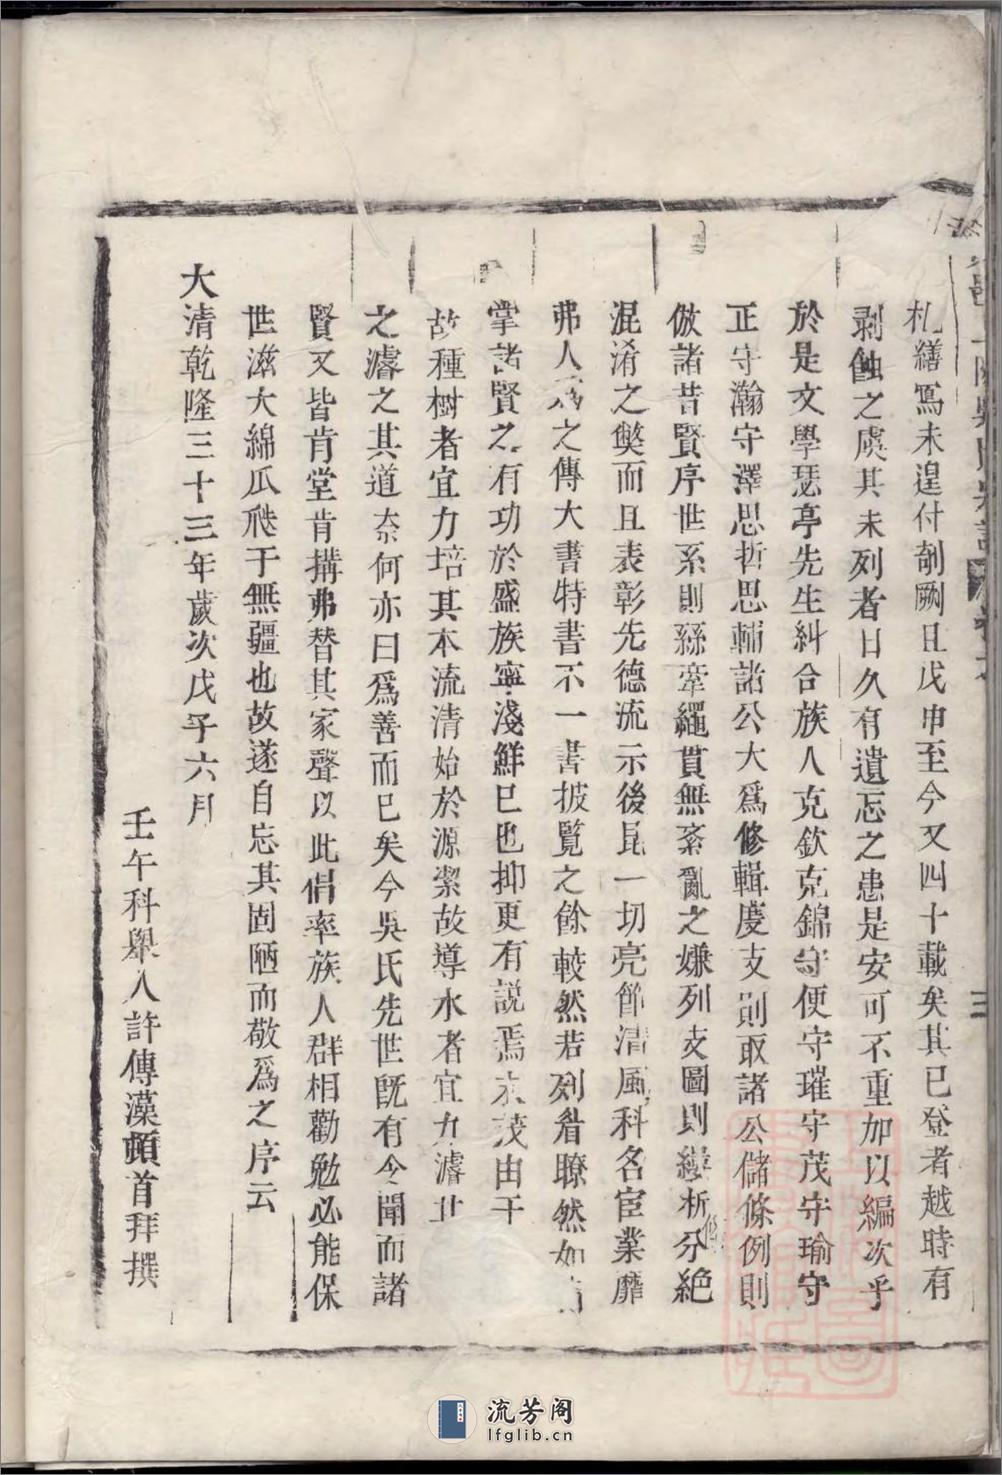 札繕寫未遑付剞劂且戊申至今又四十載矣其已登者越時有
剥蝕之虞其未列者日久有遺忘之患是安可不重加以編次乎
於是文學瑟亭先生糾合族人克欽克錦守便守璀守茂守瑜守
正守瀚守澤思哲思輔諸公大爲修輯慶支則取諸公儲條例則
倣諸昔賢序世系則絲牽繩貫無紊亂之嫌列支圖則縷析分絶
混淆之獘而且表彰先德流示後昆一切亮節清風科名宦業靡
弗人爲之傳大書特書不一書披覽之餘較然若列眉瞭然如
掌諸賢之有功於盛族寧淺鮮已也抑更有説焉木茂由于
故種樹者宜力培其本流清始於源潔故導水者宜力濬
之濬之其道奈何亦曰爲善而已矣今吳氏先世既有令聞而諸
賢又皆肯堂肯搆弗替其家聲以此倡率族人群相勸勉必能保
世滋大綿瓜瓞于無疆也故遂自忘其固陋而敬爲之序云
大清乾隆三十三年歲次戊子六月
壬午科舉人許傳藻頓首拜撰
三
流芳阁
lfglib.cn